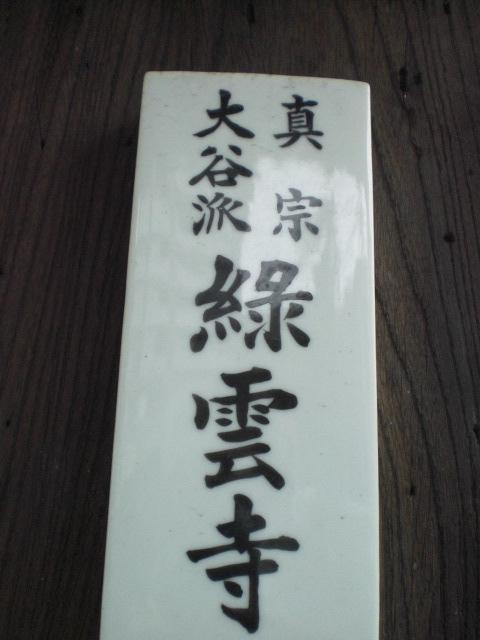 真宗
大谷派
綠雲寺